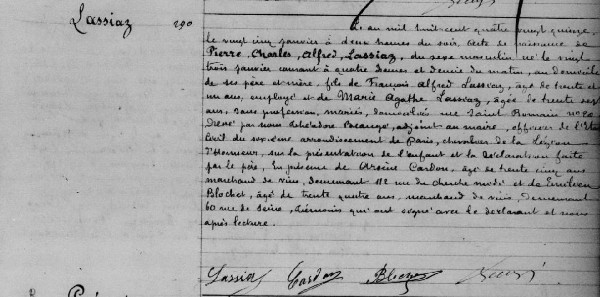 Lassiaz 290
L'an mil huit cent quatre vingt quinze,
le vingt cinq janvier à deux heures du soir, acte de naissance de
Pierre, Charles, Alfred, Lassiaz, du sexe masculin né le vingt
trois janvier courant à quatre heures et demie du matin, au domicile
de ses père et mère, fils de François Alfred Lassiaz, âgé de trente et
un ans, employé et de Marie Agathe Lassiaz, âgée de trente sept
ans, sans profession, mariés, domiciliés rue Saint Romain
Dressé par nous adjoint au maire, officier de l'Etat
Civil du sixième arrondissement de Paris, chevalier de la Légion
d'Honneur, sur la présentation de l'enfant et la déclaration faite
par le père, En présence de Arsène Cardon, âgé de trente cinq ans
marchand de vins, demeurant 112 rue du Cherche midi et de
Blochet, âgé de trente quatre ans, marchand de vins, demeurant
60 rue de Seine, témoins qui ont signé avec le déclarant et nous
après lecture.
Lassiaz Cardon Blochet